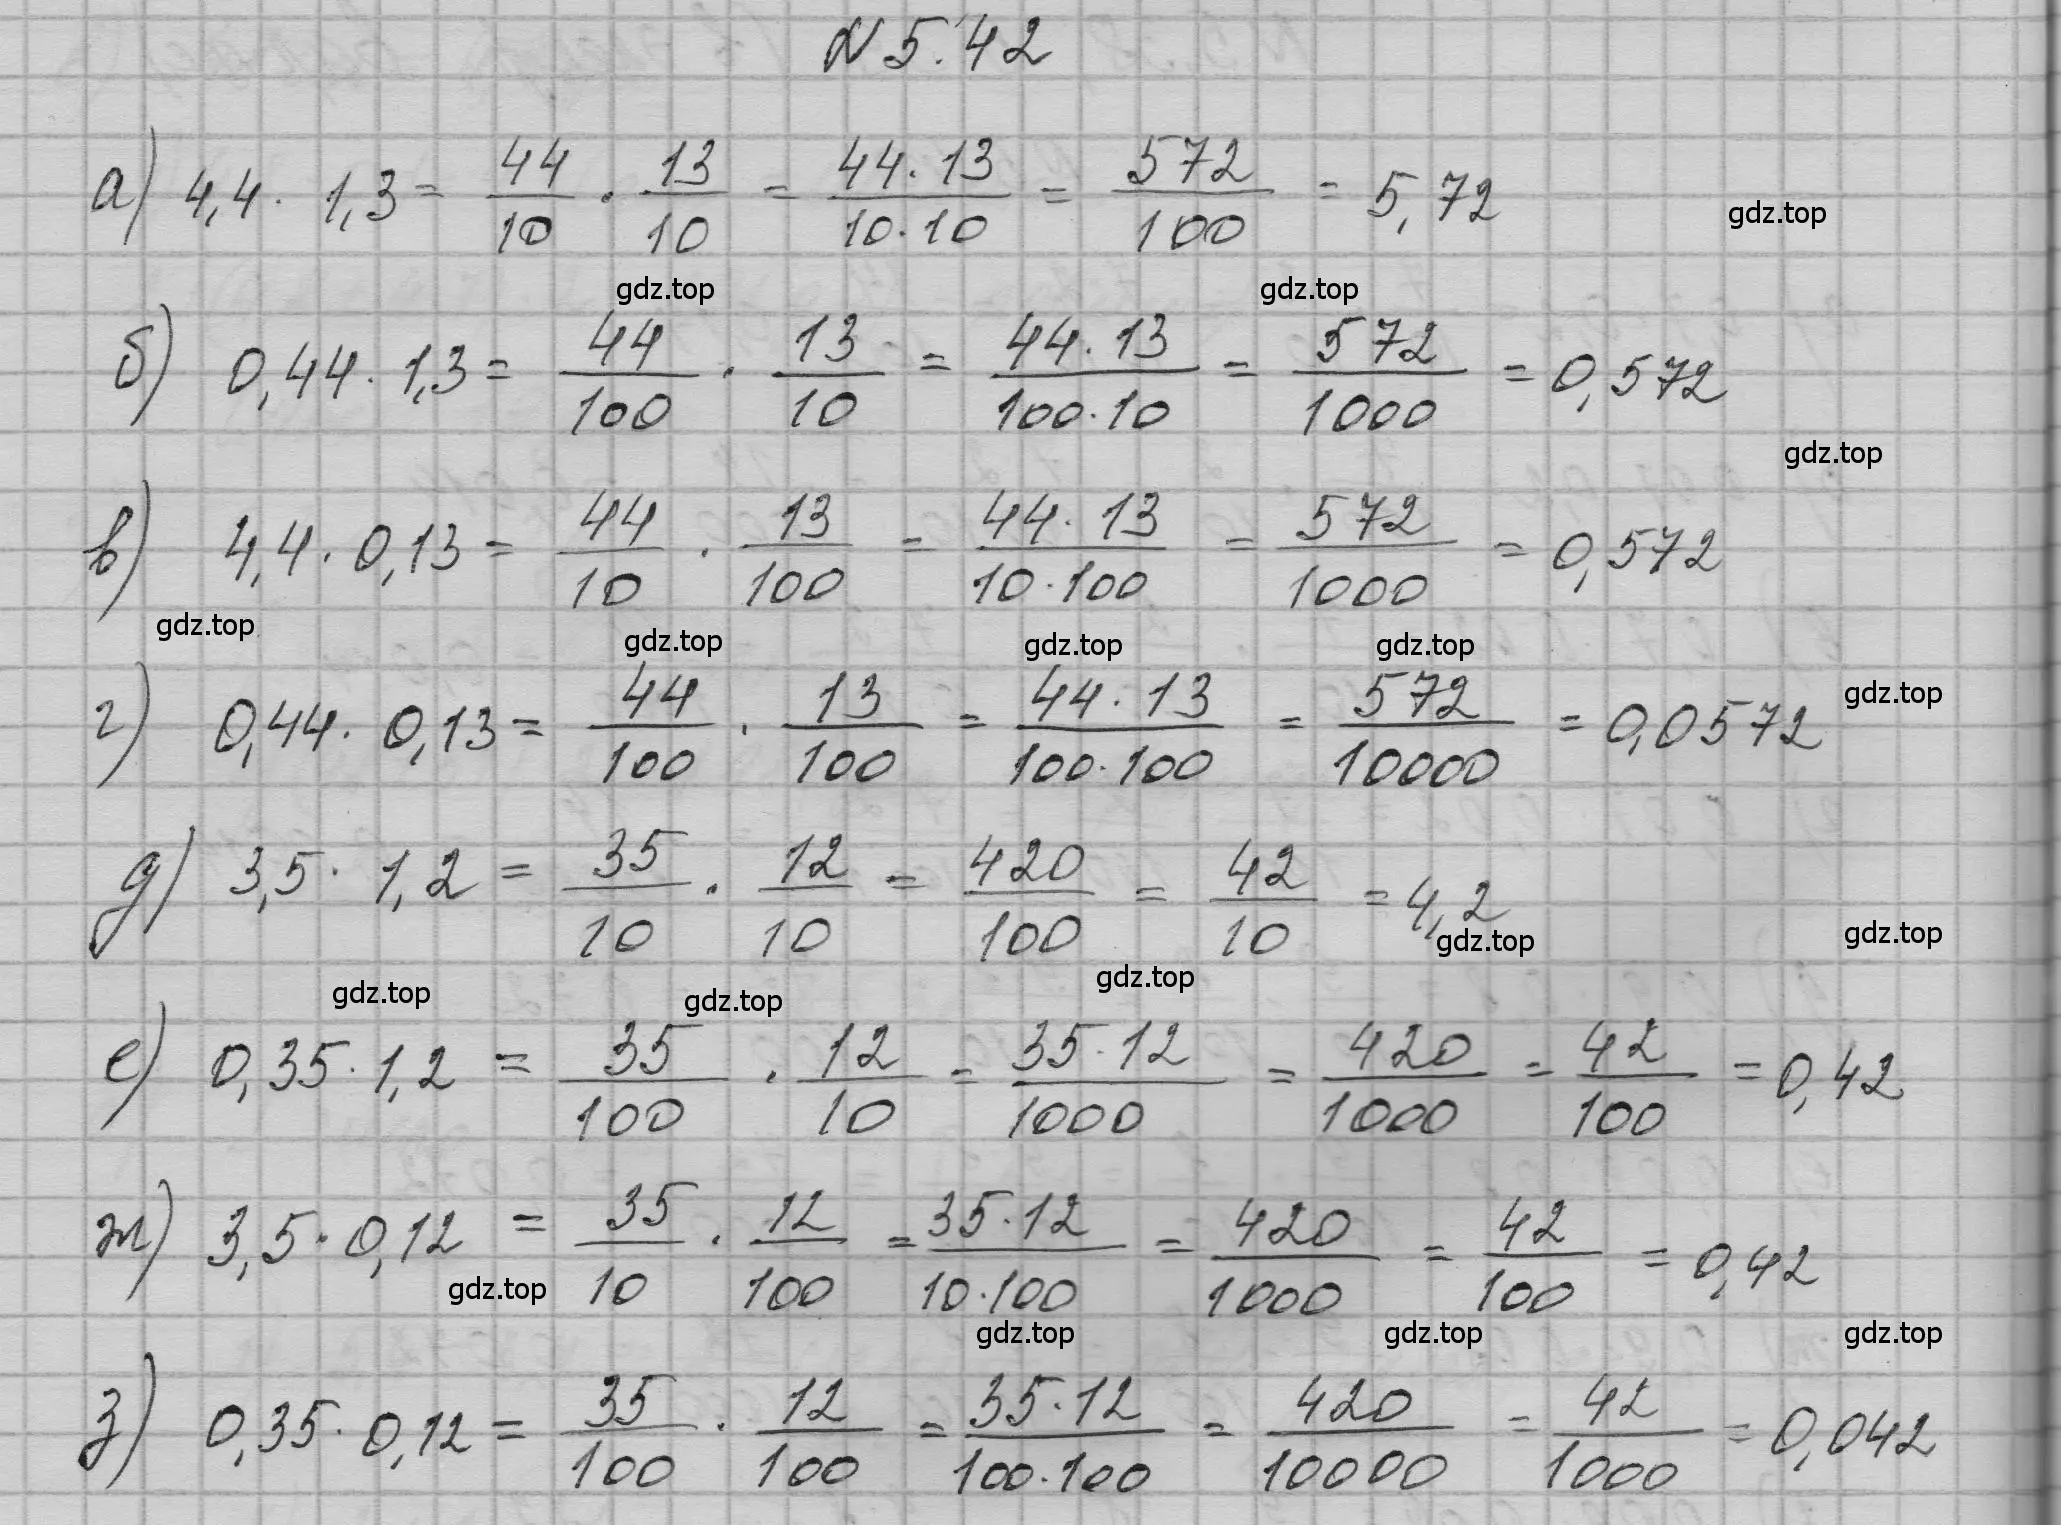 N 5.42
а) 4,4 · 1,3 = 44/10 · 13/10 = 44·13/10·10 = 572/100 = 5,72
gdz.top
gdz.top gdz.top
б) 0,44 · 1,3 = 44/100 · 13/10 = 44·13/100·10 = 572/1000 = 0,572
gdz.top
в) 4,4 · 0,13 = 44/10 · 13/100 = 44·13/10·100 = 572/1000 = 0,572
gdz.top gdz.top gdz.top gdz.top
г) 0,44 · 0,13 = 44/100 · 13/100 = 44·13/100·100 = 572/10000 = 0,0572
gdz.top
д) 3,5 · 1,2 = 35/10 · 12/10 = 420/100 = 42/10 = 4,2
gdz.top gdz.top
gdz.top gdz.top gdz.top
е) 0,35 · 1,2 = 35/100 · 12/10 = 35·12/1000 = 420/1000 = 42/100 = 0,42
ж) 3,5 · 0,12 = 35/10 · 12/100 = 35·12/10·100 = 420/1000 = 42/100 = 0,42
gdz.top
gdz.top gdz.top gdz.top
з) 0,35 · 0,12 = 35/100 · 12/100 = 35·12/100·100 = 420/10000 = 42/1000 = 0,042